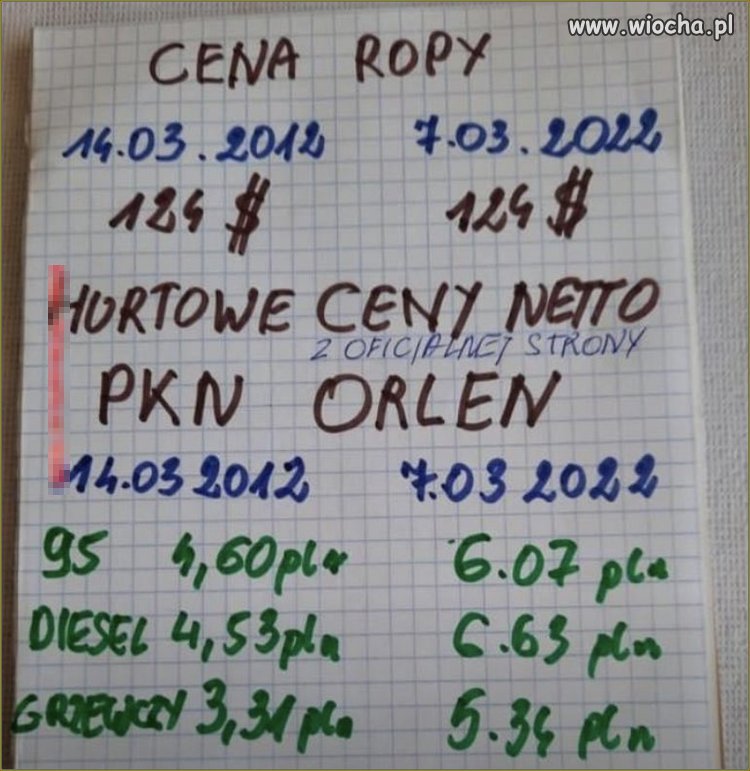 www.wiocha.pl
CENA ROPY
14.03.2012 7.03.2022
124 $ 124 $
HURTOWE CENY NETTO
Z OFICJALNEJ STRONY
PKN ORLEN
14.03 2012 7.03 2022
95 4,60 pln 6.07 pln
DIESEL 4,53 pln 6.63 pln
GRZEWCZY 3,31 pln 5.34 pln